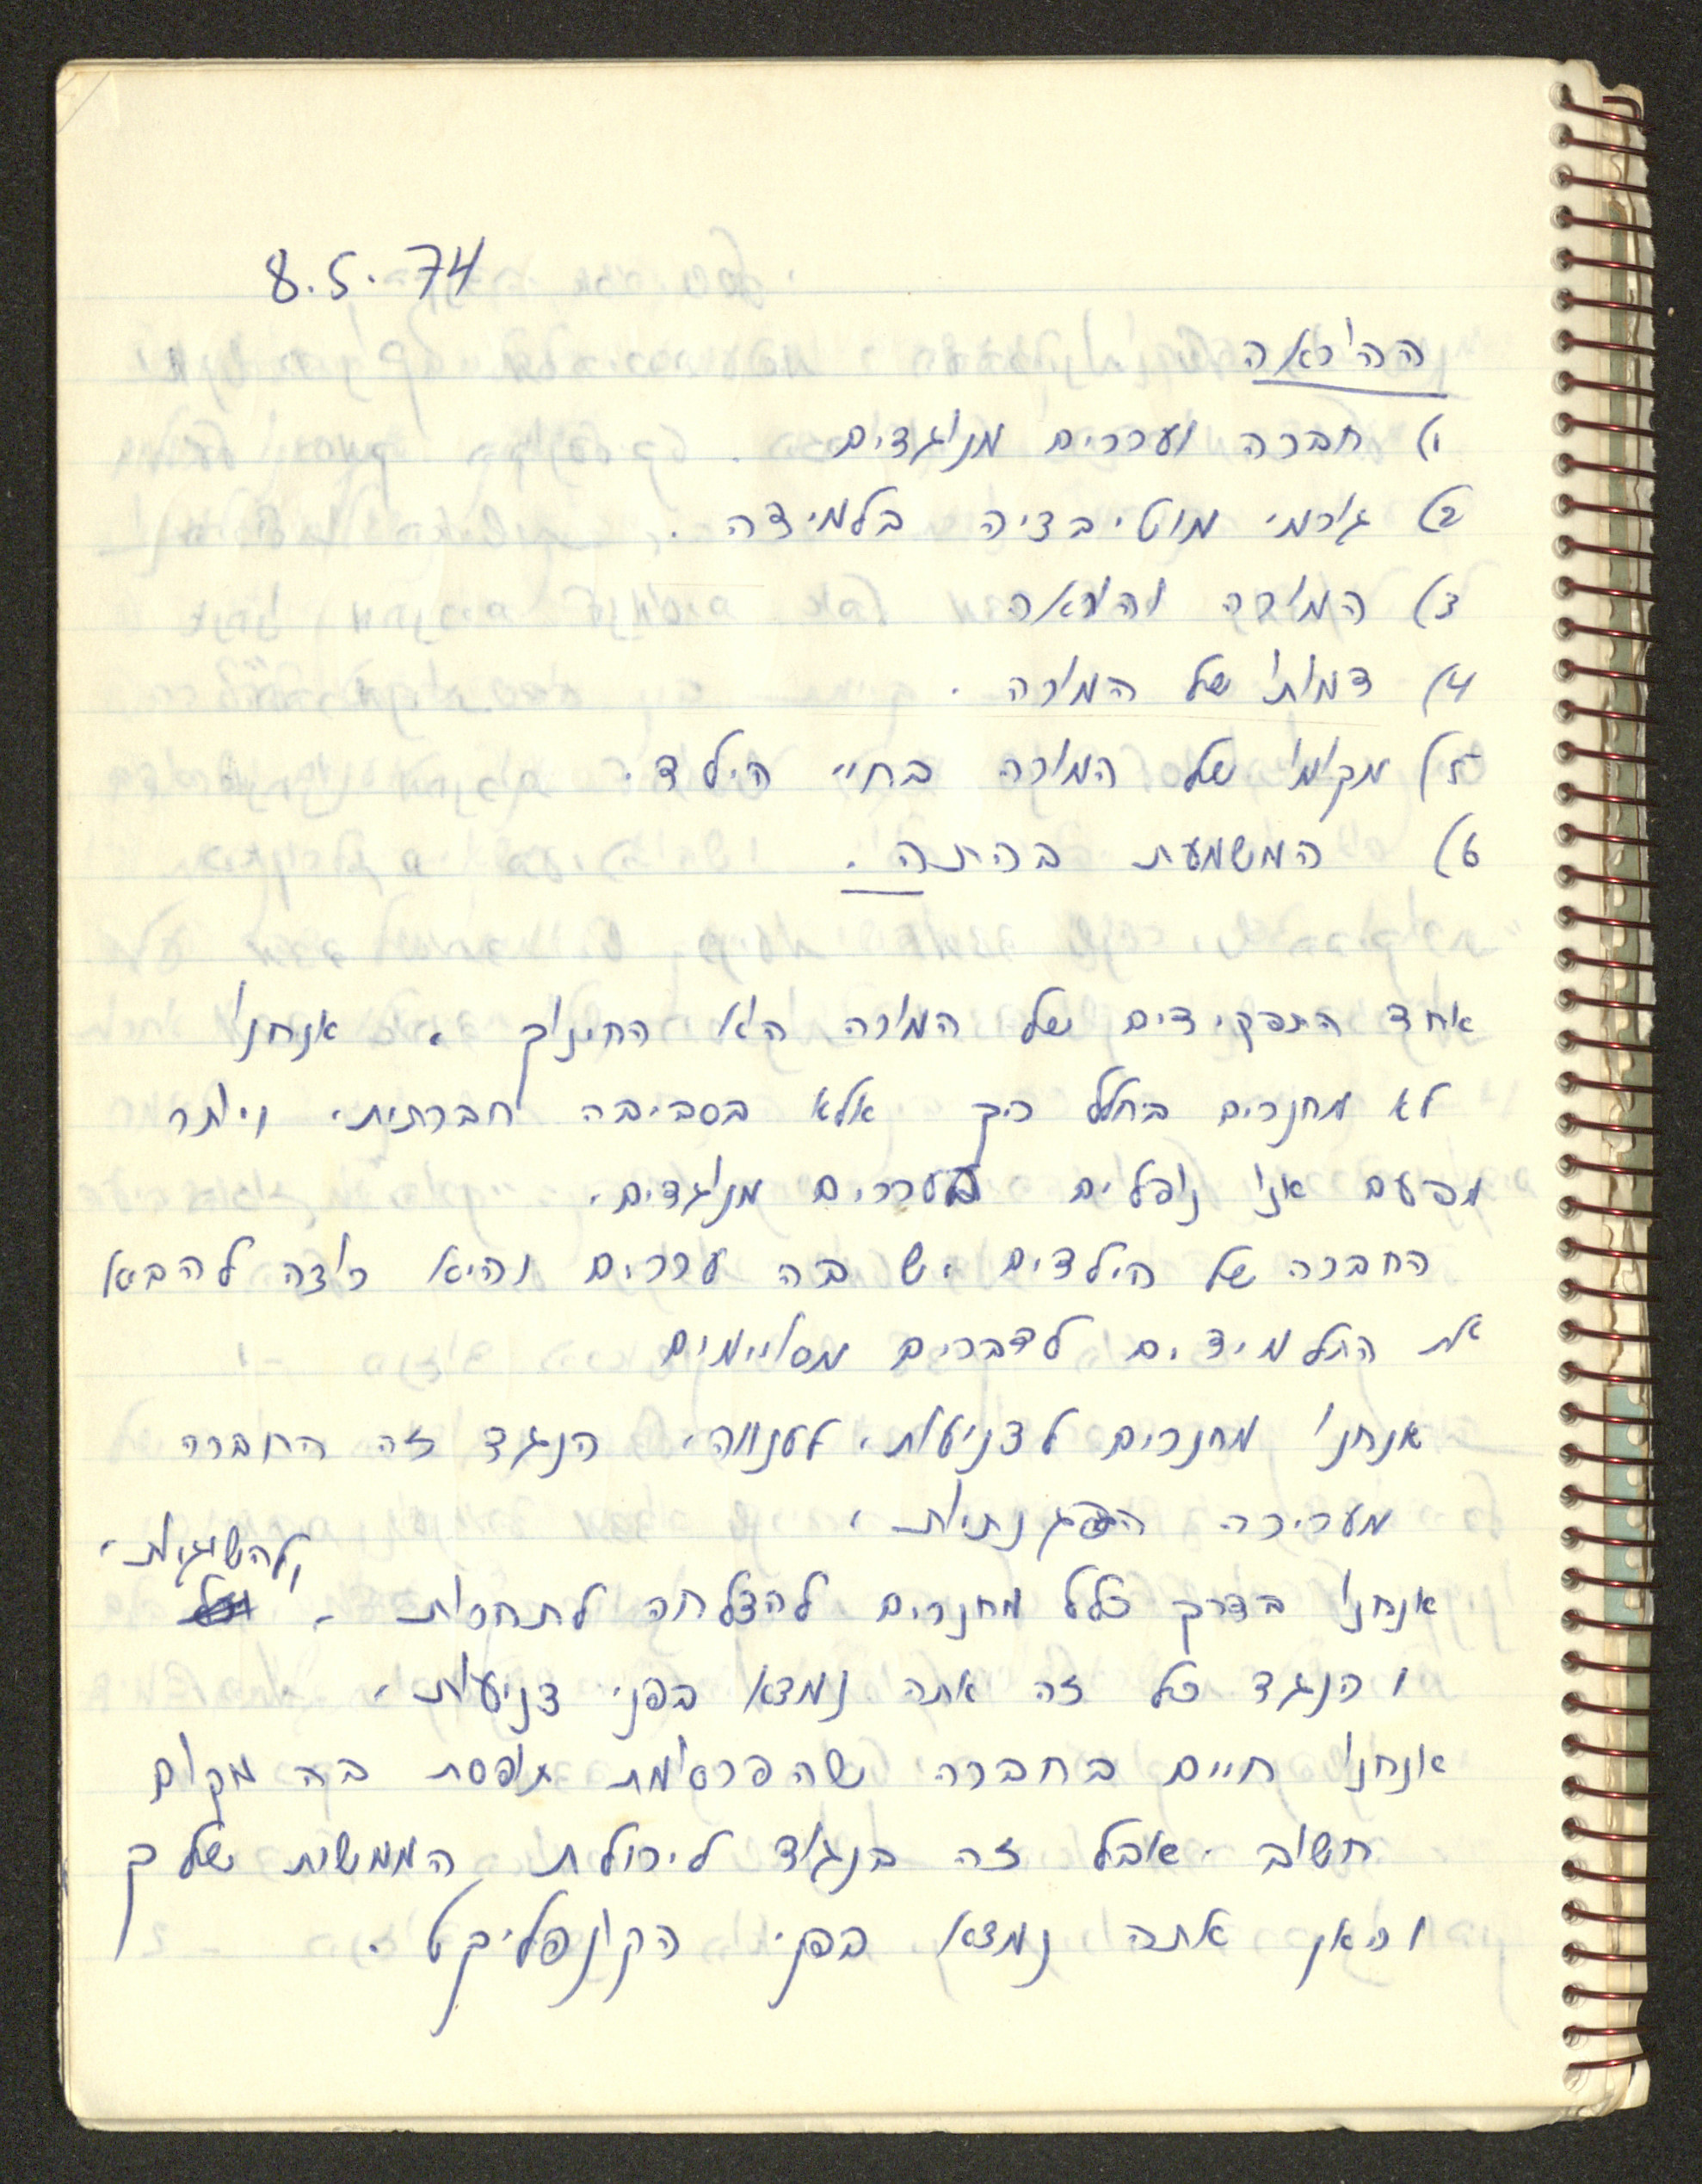 8.5.74
ההוראה
1) חברה וערכים מנוגדים.
2) גורמי מוטיבציה בלמידה.
3) המורה והוראה
4) דמותו של המורה.
5) מקומו של המורה בחיי הילד.
6) המשמעת בכיתה.
אחד התפקידים של המורה הוא החינוך, אנחנו
לא מחנכים בחלל ריק אלא בסביבה חברתית, ויותר
מפעם אנו נופלים בערכים מנוגדים.
החברה של הילדים יש בה ערכים והיא רוצה להביא
את התלמידים לדברים מסויימים
אנחנו מחנכים לצניעות, לענווה, הנגד זה החברה
מעריכה הפגנתיות,
ולהשיגיות,
אנחנו בדרך כלל מחנכים להצלחה לתחרות,
והנגד כל זה אתה נמצא בפני צניעות,
אנחנו חיים בחברה שהפרסומת תופסת בה מקום
חשוב, אבל זה בנגוד ליכולת הממשית שלך
וכאן אתה נמצא בפני הקונפליקט.